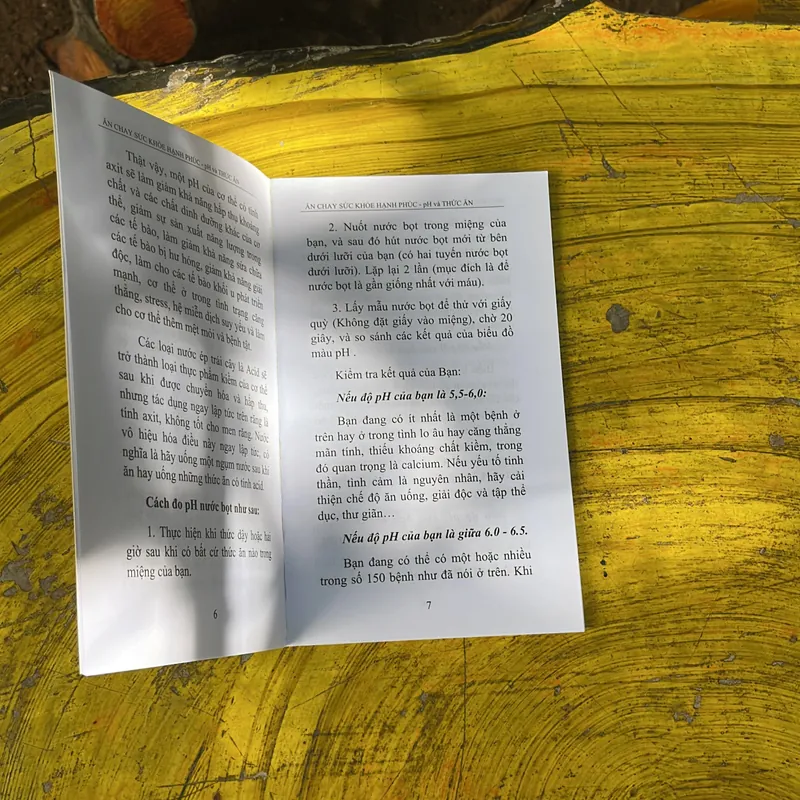 ĂN CHAY SỨC KHỎE HẠNH PHÚC - pH và THỨC ĂN
Thật vậy, một pH của cơ thể có tính
axit sẽ làm giảm khả năng hấp thu khoáng
chất và các chất dinh dưỡng khác của cơ
thể, giảm sự sản xuất năng lượng trong
các tế bào, làm giảm khả năng sửa chữa
các tế bào bị hư hỏng, giảm khả năng giải
độc, làm cho các tế bào khối u phát triển
mạnh, cơ thể ở trong tình trạng căng
thẳng, stress, hệ miễn dịch suy yếu và làm
cho cơ thể thêm mệt mỏi và bệnh tật.
Các loại nước ép trái cây là Acid sẽ
trở thành loại thực phẩm kiềm của cơ thể
sau khi được chuyển hóa và hấp thu,
nhưng tác dụng ngay lập tức trên răng là
tính axit, không tốt cho men răng. Nước
vô hiệu hóa điều này ngay lập tức, có
nghĩa là hãy uống một ngụm nước sau khi
ăn hay uống những thức ăn có tính acid.
Cách đo pH nước bọt như sau:
1. Thực hiện khi thức dậy hoặc hai
giờ sau khi có bất cứ thức ăn nào trong
miệng của bạn.
6
ĂN CHAY SỨC KHỎE HẠNH PHÚC - pH và THỨC ĂN
2. Nuốt nước bọt trong miệng của
bạn, và sau đó hút nước bọt mới từ bên
dưới lưỡi của bạn (có hai tuyến nước bọt
dưới lưỡi). Lặp lại 2 lần (mục đích là để
nước bọt là gần giống nhất với máu).
3. Lấy mẫu nước bọt để thử với giấy
quỳ (Không đặt giấy vào miệng), chờ 20
giây, và so sánh các kết quả của biểu đồ
màu pH .
Kiểm tra kết quả của Bạn:
Nếu độ pH của bạn là 5,5-6,0:
Bạn đang có ít nhất là một bệnh ở
trên hay ở trong tình lo âu hay căng thẳng
mãn tính, thiếu khoáng chất kiềm, trong
đó quan trọng là calcium. Nếu yếu tố tinh
thần, tình cảm là nguyên nhân, hãy cải
thiện chế độ ăn uống, giải độc và tập thể
dục, thư giãn…
Nếu độ pH của bạn là giữa 6.0 - 6.5.
Bạn đang có thể có một hoặc nhiều
trong số 150 bệnh như đã nói ở trên. Khi
7